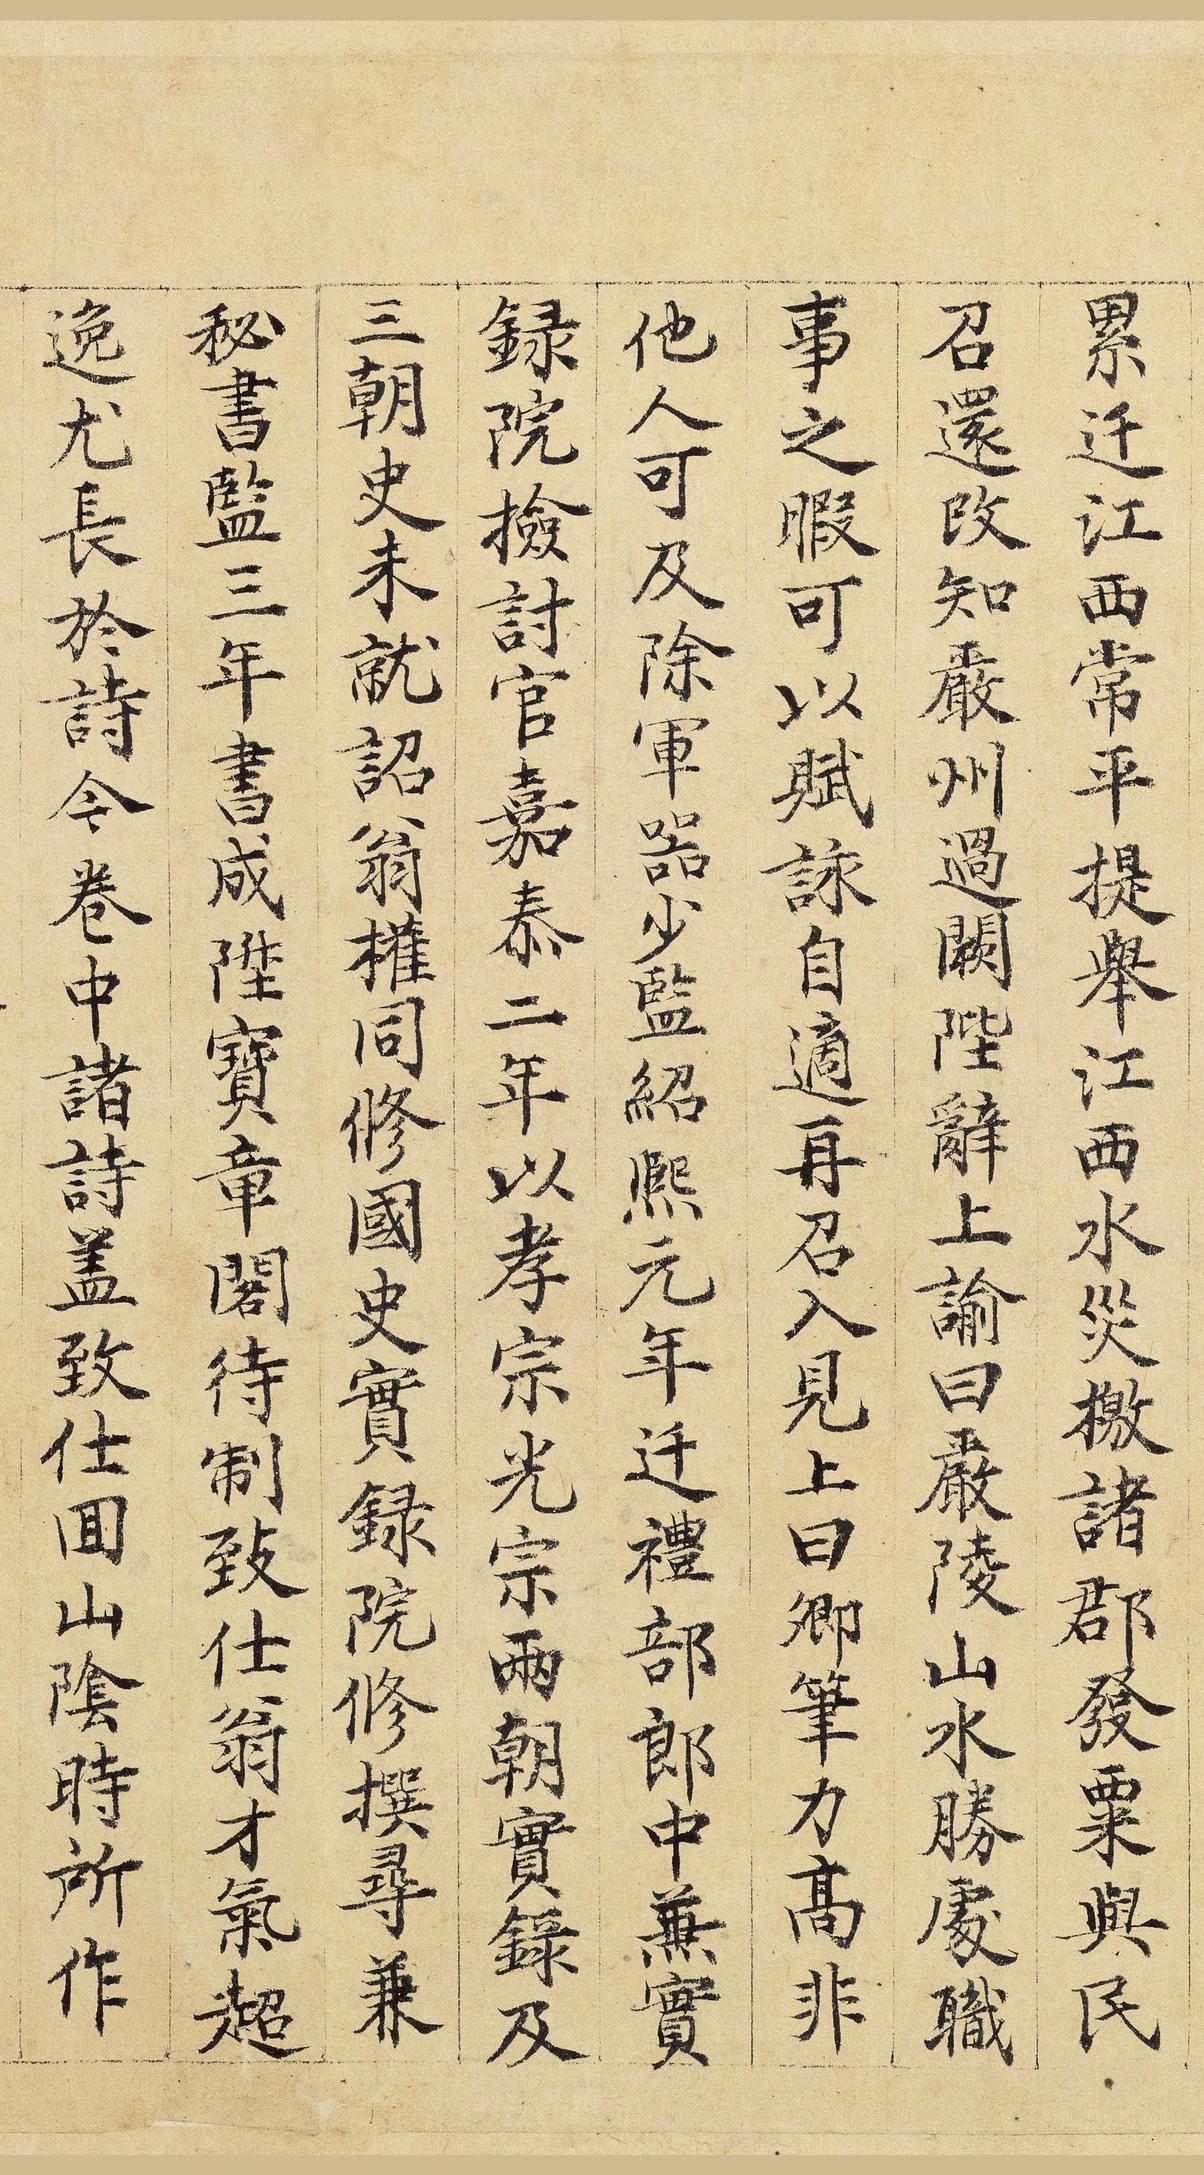 累迁江西常平提舉江西水災檄諸郡發粟與民
召還改知嚴州過闕陛辭上諭曰嚴陵山水勝處職
事之暇可以賦詠自適再召入見上曰卿筆力高非
他人可及除軍器少監紹熙元年迁禮部郎中兼實
録院檢討官嘉泰二年以孝宗光宗兩朝實錄及
三朝史未就詔翁權同修國史實録院修撰尋兼
秘書監三年書成陞寶章閣待制致仕翁才氣超
逸尤長於詩今卷中諸詩盖致仕囬山陰時所作